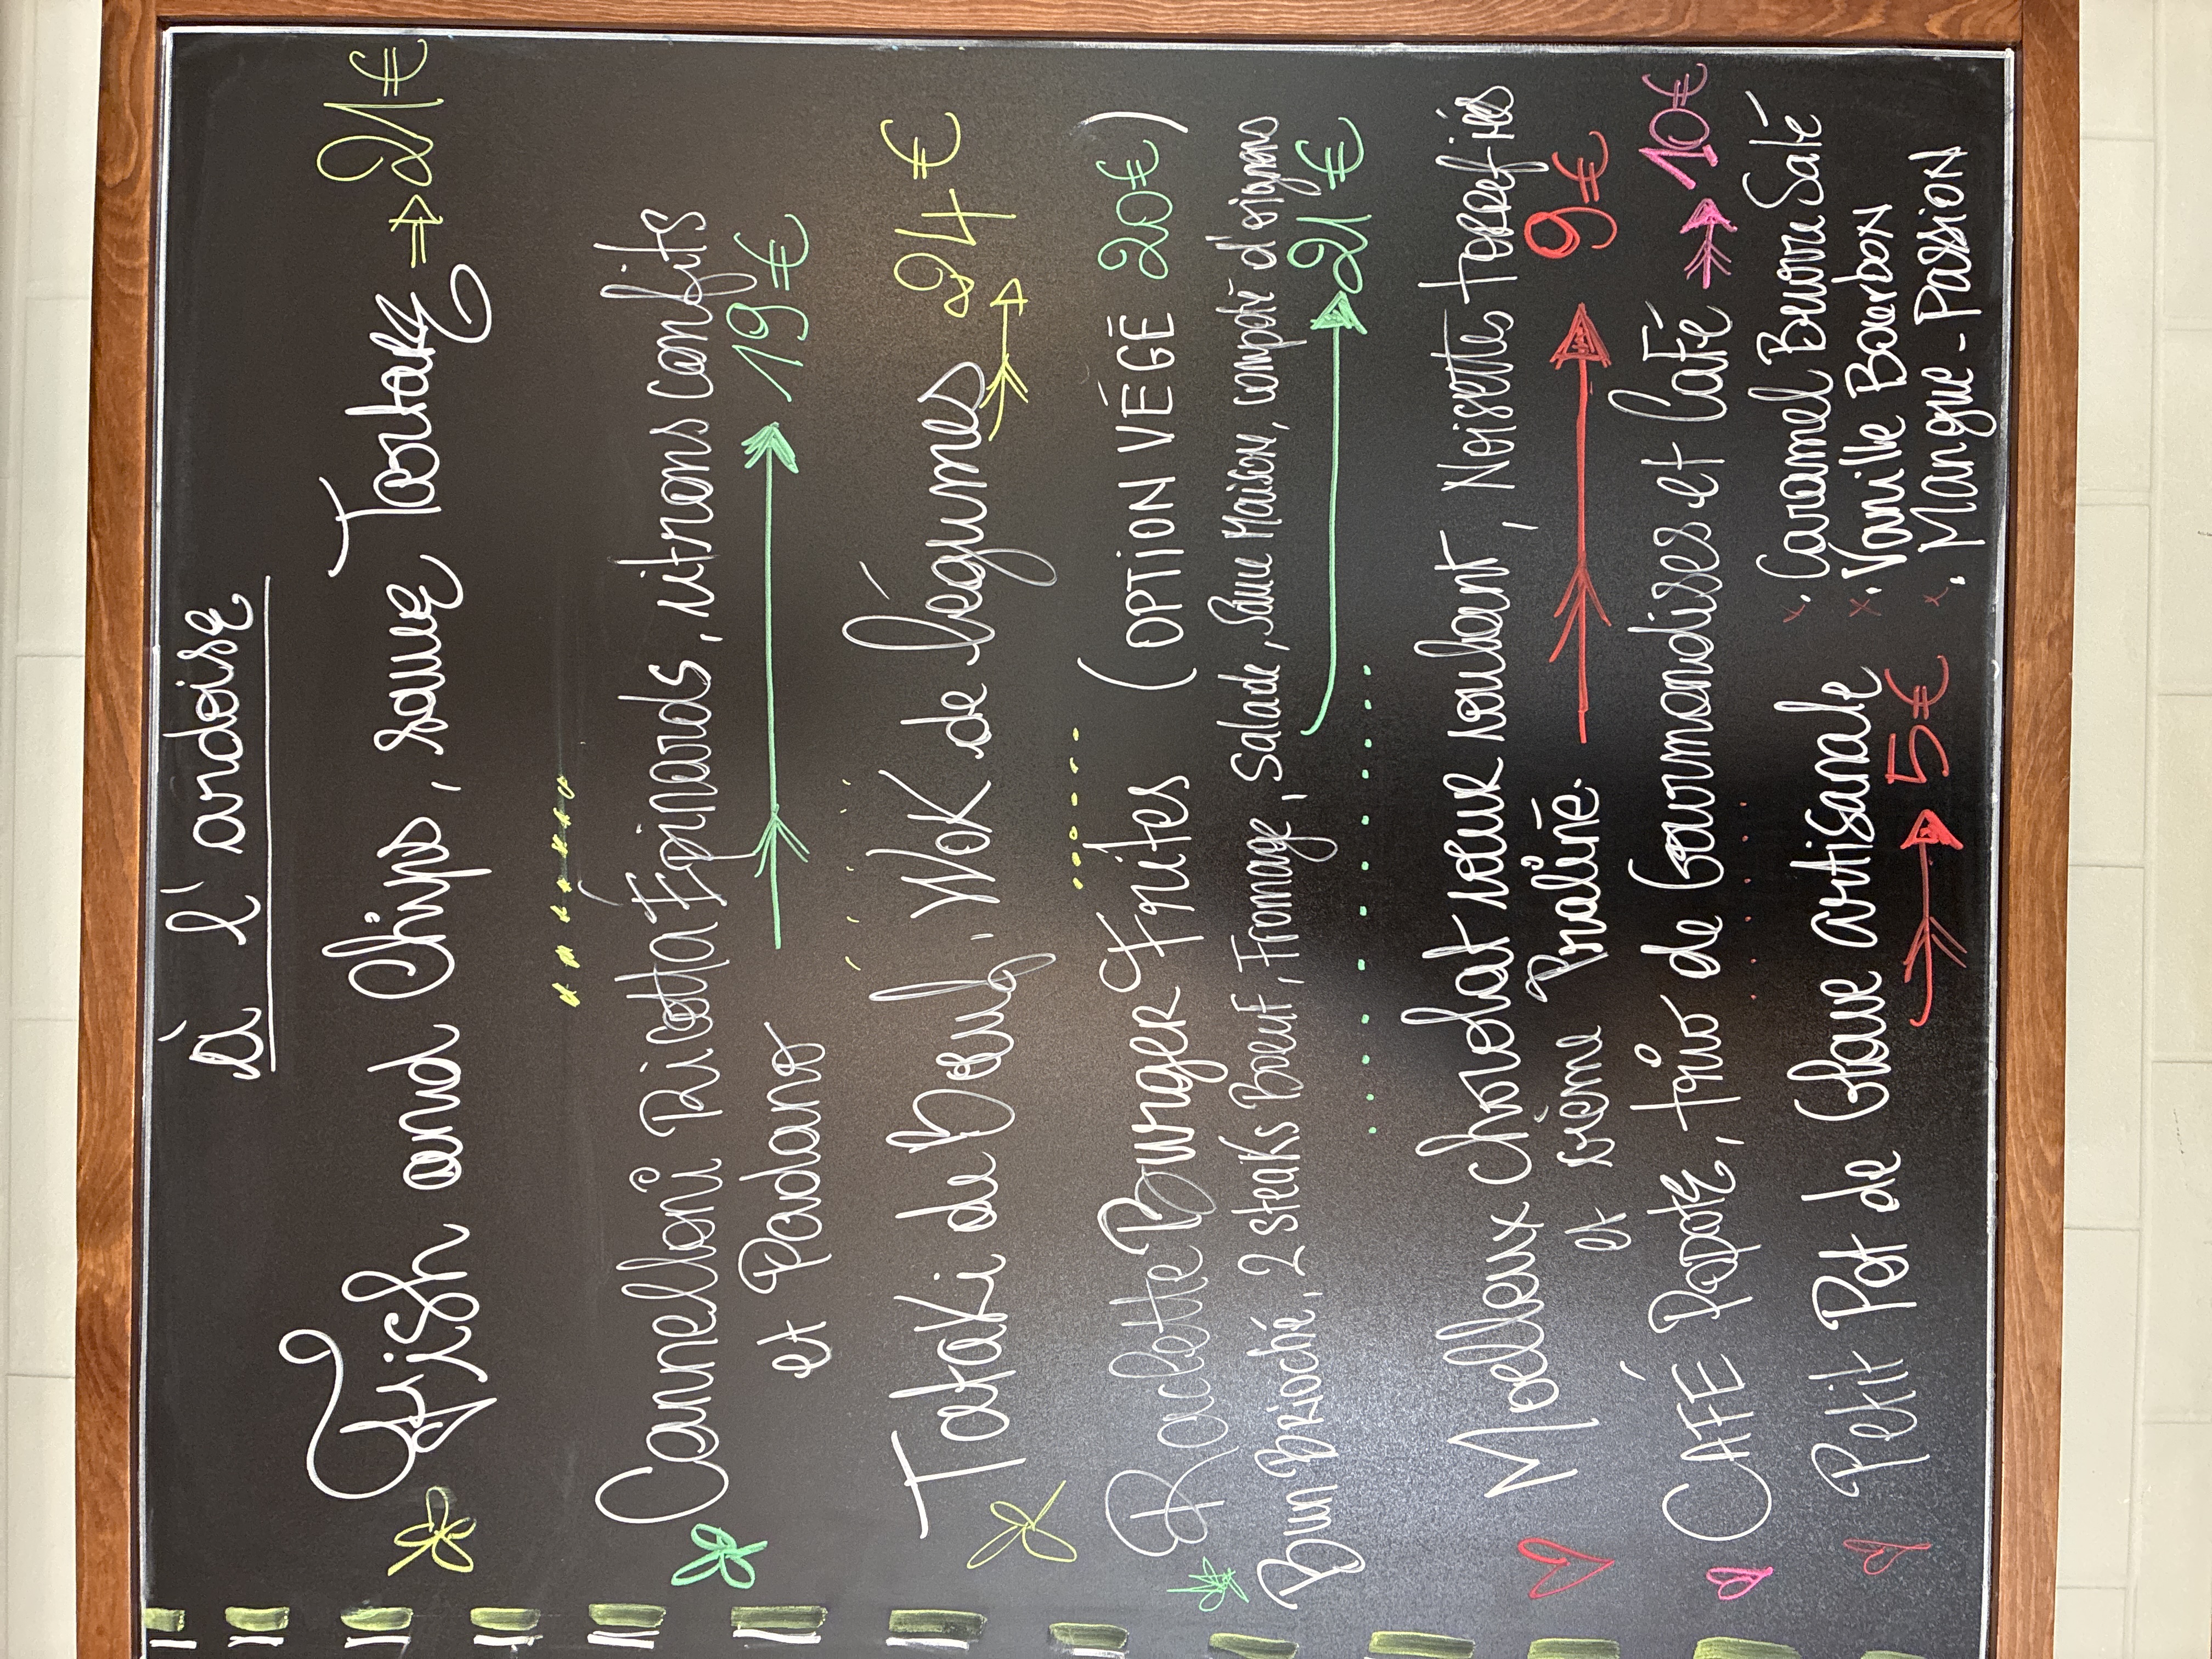 à l'ardoise
Fish and Chips, sauce Tartare 21€
Cannelloni Ricotta Épinards, citrons confits
et Padano 19€
Tataki de Bœuf, Wok de légumes
24€
Raclette Burger Frites (OPTION VÉGÉ 20€)
Bun Brioché, 2 steaks Boeuf, Fromage, Salade, Sauce Maison, compoté d'oignons
21€
Moelleux chocolat cœur coulant, Noisette torréfiés
et crème Praliné. 9€
CAFÉ Papote, trio de Gourmandises et Café 10€
Petit Pot de Glace artisanale
5€
. Caramel Beurre Salé
. Vanille Bourbon
. Mangue - Passion